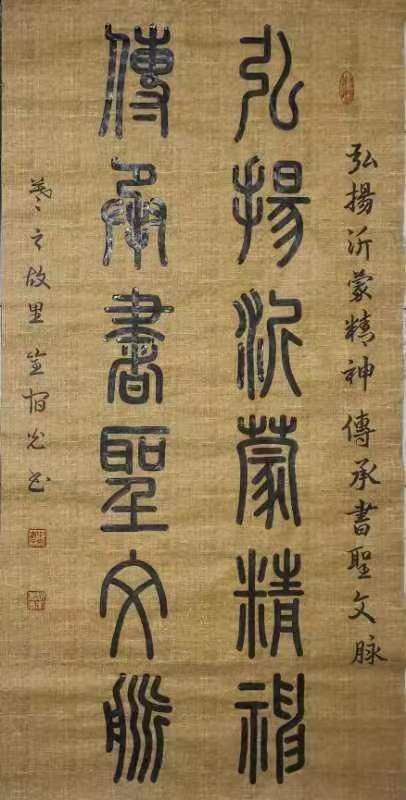 弘揚沂蒙精神傳承書聖文脉
弘揚沂蒙精神
傳承書聖文脈
羲之故里